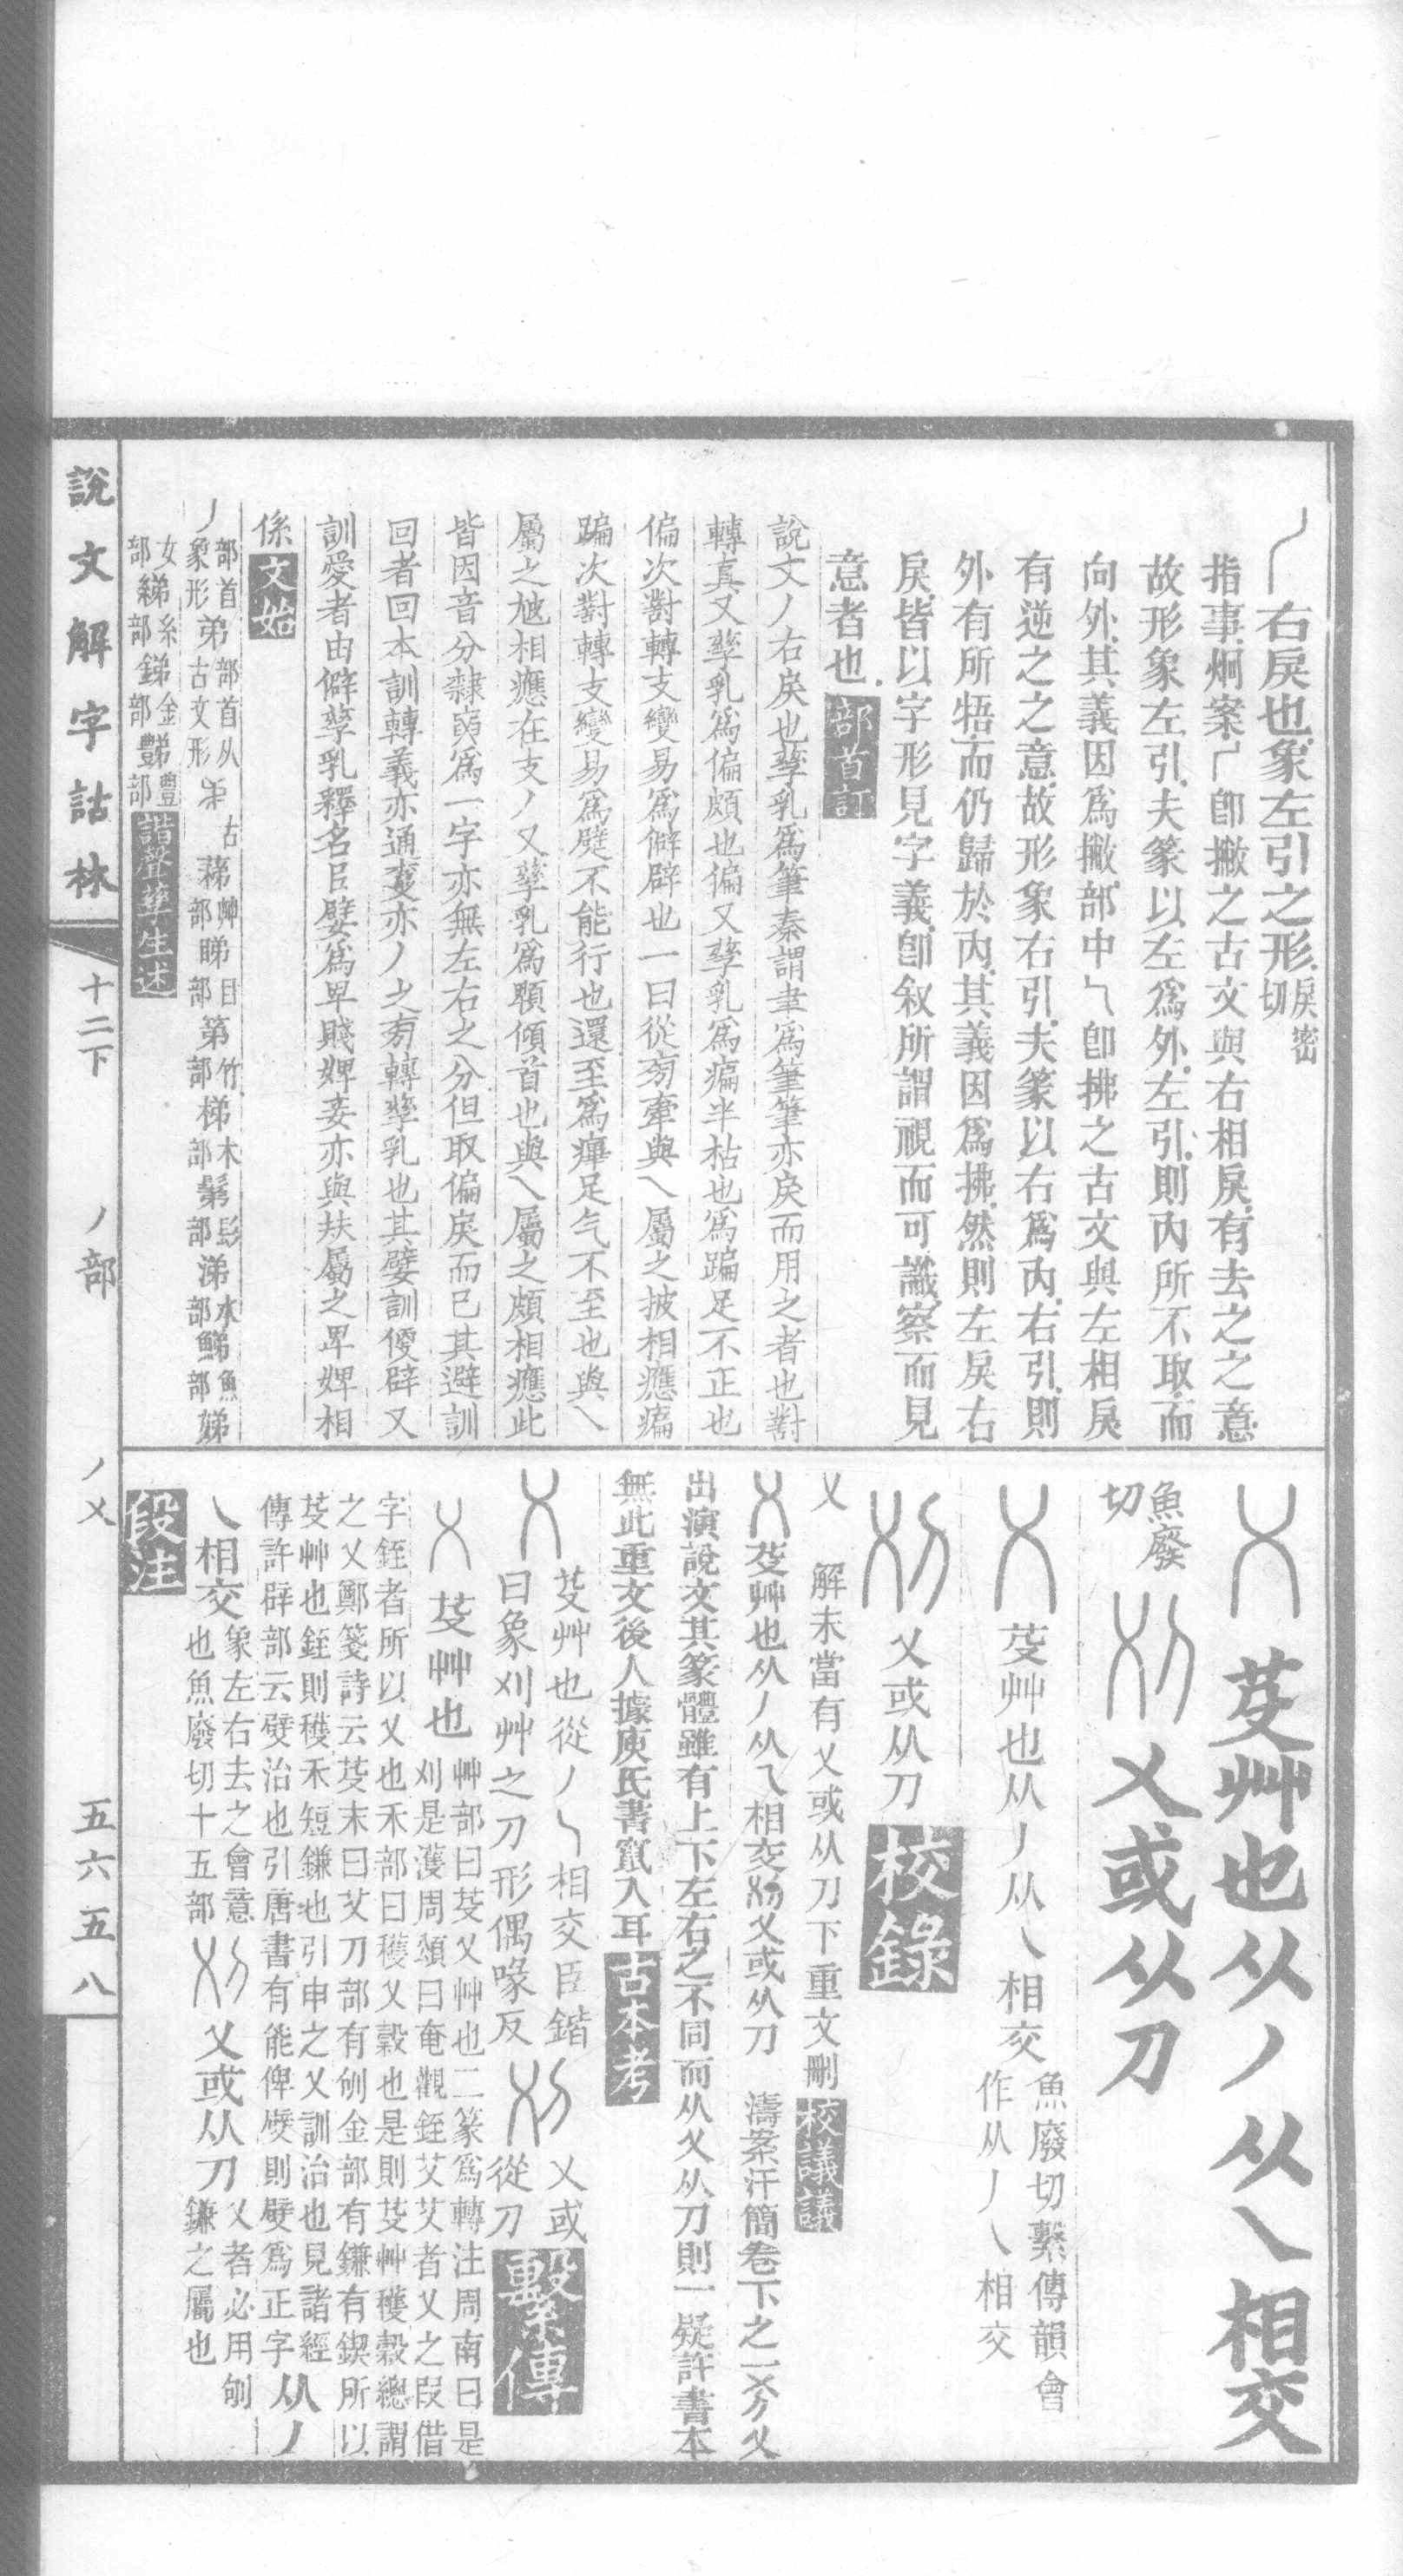 右戾也象左引之形房密切
指事炯案丿卽撇之古文與右相戾有去之之意
故形象左引夫篆以左爲外左引則內所不取而
向外其義因爲撇部中乀卽拂之古文與左相戾
有逆之之意故形象右引夫篆以右爲內右引則
外有所牾而仍歸於內其義因爲拂然則左戾右
戾皆以字形見字義卽敘所謂視而可識察而見
意者也部首訂
說文丿右戾也孳乳爲筆秦謂聿爲筆筆亦戾而用之者也對
轉眞又孳乳爲偏頗也偏又孳乳爲瘺半枯也爲蹁足不正也
偏次對轉支變易爲僻辟也一曰從旁牽與乀屬之披相應瘺
蹁次對轉支變易爲躄不能行也還至爲痹足气不至也與乀
屬之尰相應在支丿又孳乳爲頤傾首也與乀屬之頗相應此
皆因音分隸實爲一字亦無左右之分但取偏戾而已其避訓
回者回本訓轉義亦通妄亦丿之旁轉孳乳也其嬖訓便辟又
訓愛者由僻孳乳釋名曰嬖爲卑賤婢妾亦與扶屬之卑婢相
係文始
丿部首象形弟部首从古文形古梯艸部睇目部第竹部梯木部髴髟部涕水部鮷魚部娣
女部綈糸部銻金部豑豐部諧聲孳生述
乂芟艸也从丿从乀相交
魚廢切乂或从刀
芟艸也从丿从乀相交魚廢切繫傳韻會作从丿乀相交
乂或从刀校錄
乂解末當有乂或从刀下重文刪校議議
芟艸也从丿从乀相交刈乂或从刀 濤案汗簡卷下之一
出演說文其篆體雖有上下左右之不同而从乂从刀則一疑許書本
無此重文後人據庾氏書竄入耳古本考
芟艸也從丿乀相交臣鍇曰象刈艸之刀形偶喙反乂或從刀繫傳
芟艸也艸部曰芟乂艸也二篆爲轉注周南曰是刈是濩周頌曰奄觀銍艾艾者乂之叚借
字銍者所以乂也禾部曰穫乂穀也是則芟艸穫穀總謂之乂鄭箋詩云芟末曰艾刀部有刨金部有鎌有鍥所以
芟艸也銍則穫禾短鎌也引申之乂訓治也見諸經傳許辟部云嬖治也引唐書有能俾嬖則嬖爲正字从丿
乀相交象左右去之會意也魚廢切十五部乂或从刀乂者必用刨鎌之屬也
段注
說文解字詁林 十二下 丿部 丿乂 五六五八